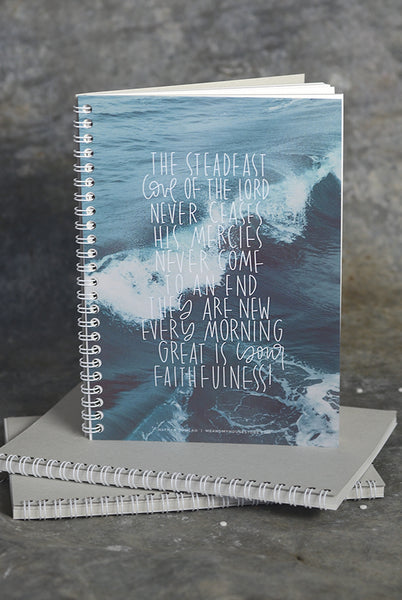 THE STEADFAST
love OF THE LORD
NEVER CEASES
HIS MERCIES
NEVER COME
TO AN END
THEY ARE NEW
EVERY MORNING
GREAT IS your
FAITHFULNESS!